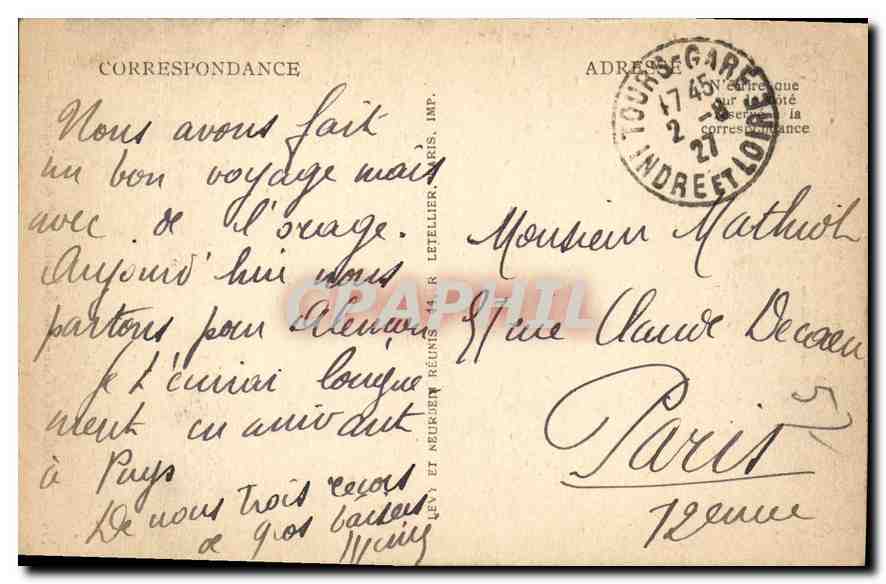 CORRESPONDANCE
Nous avons fait
un bon voyage mais
avec de l'orage.
Aujourd'hui nous
partons pour Alençon
Je t'écrirai longue
ment en arrivant
à Puys
De nous trois reçois
de gros baisers
LEVY ET NEURDEIN RÉUNIS 44, R LETELLIER, PARIS, IMP.
ADRESSE
N'écrire que
sur le côté
réservé à la
correspondance
TOURS-GARE
17 45
2 -8
27
INDRE ET LOIRE
Monsieur Mathiot
rue Claude Decaen
Paris
12eme
CPAPHIL